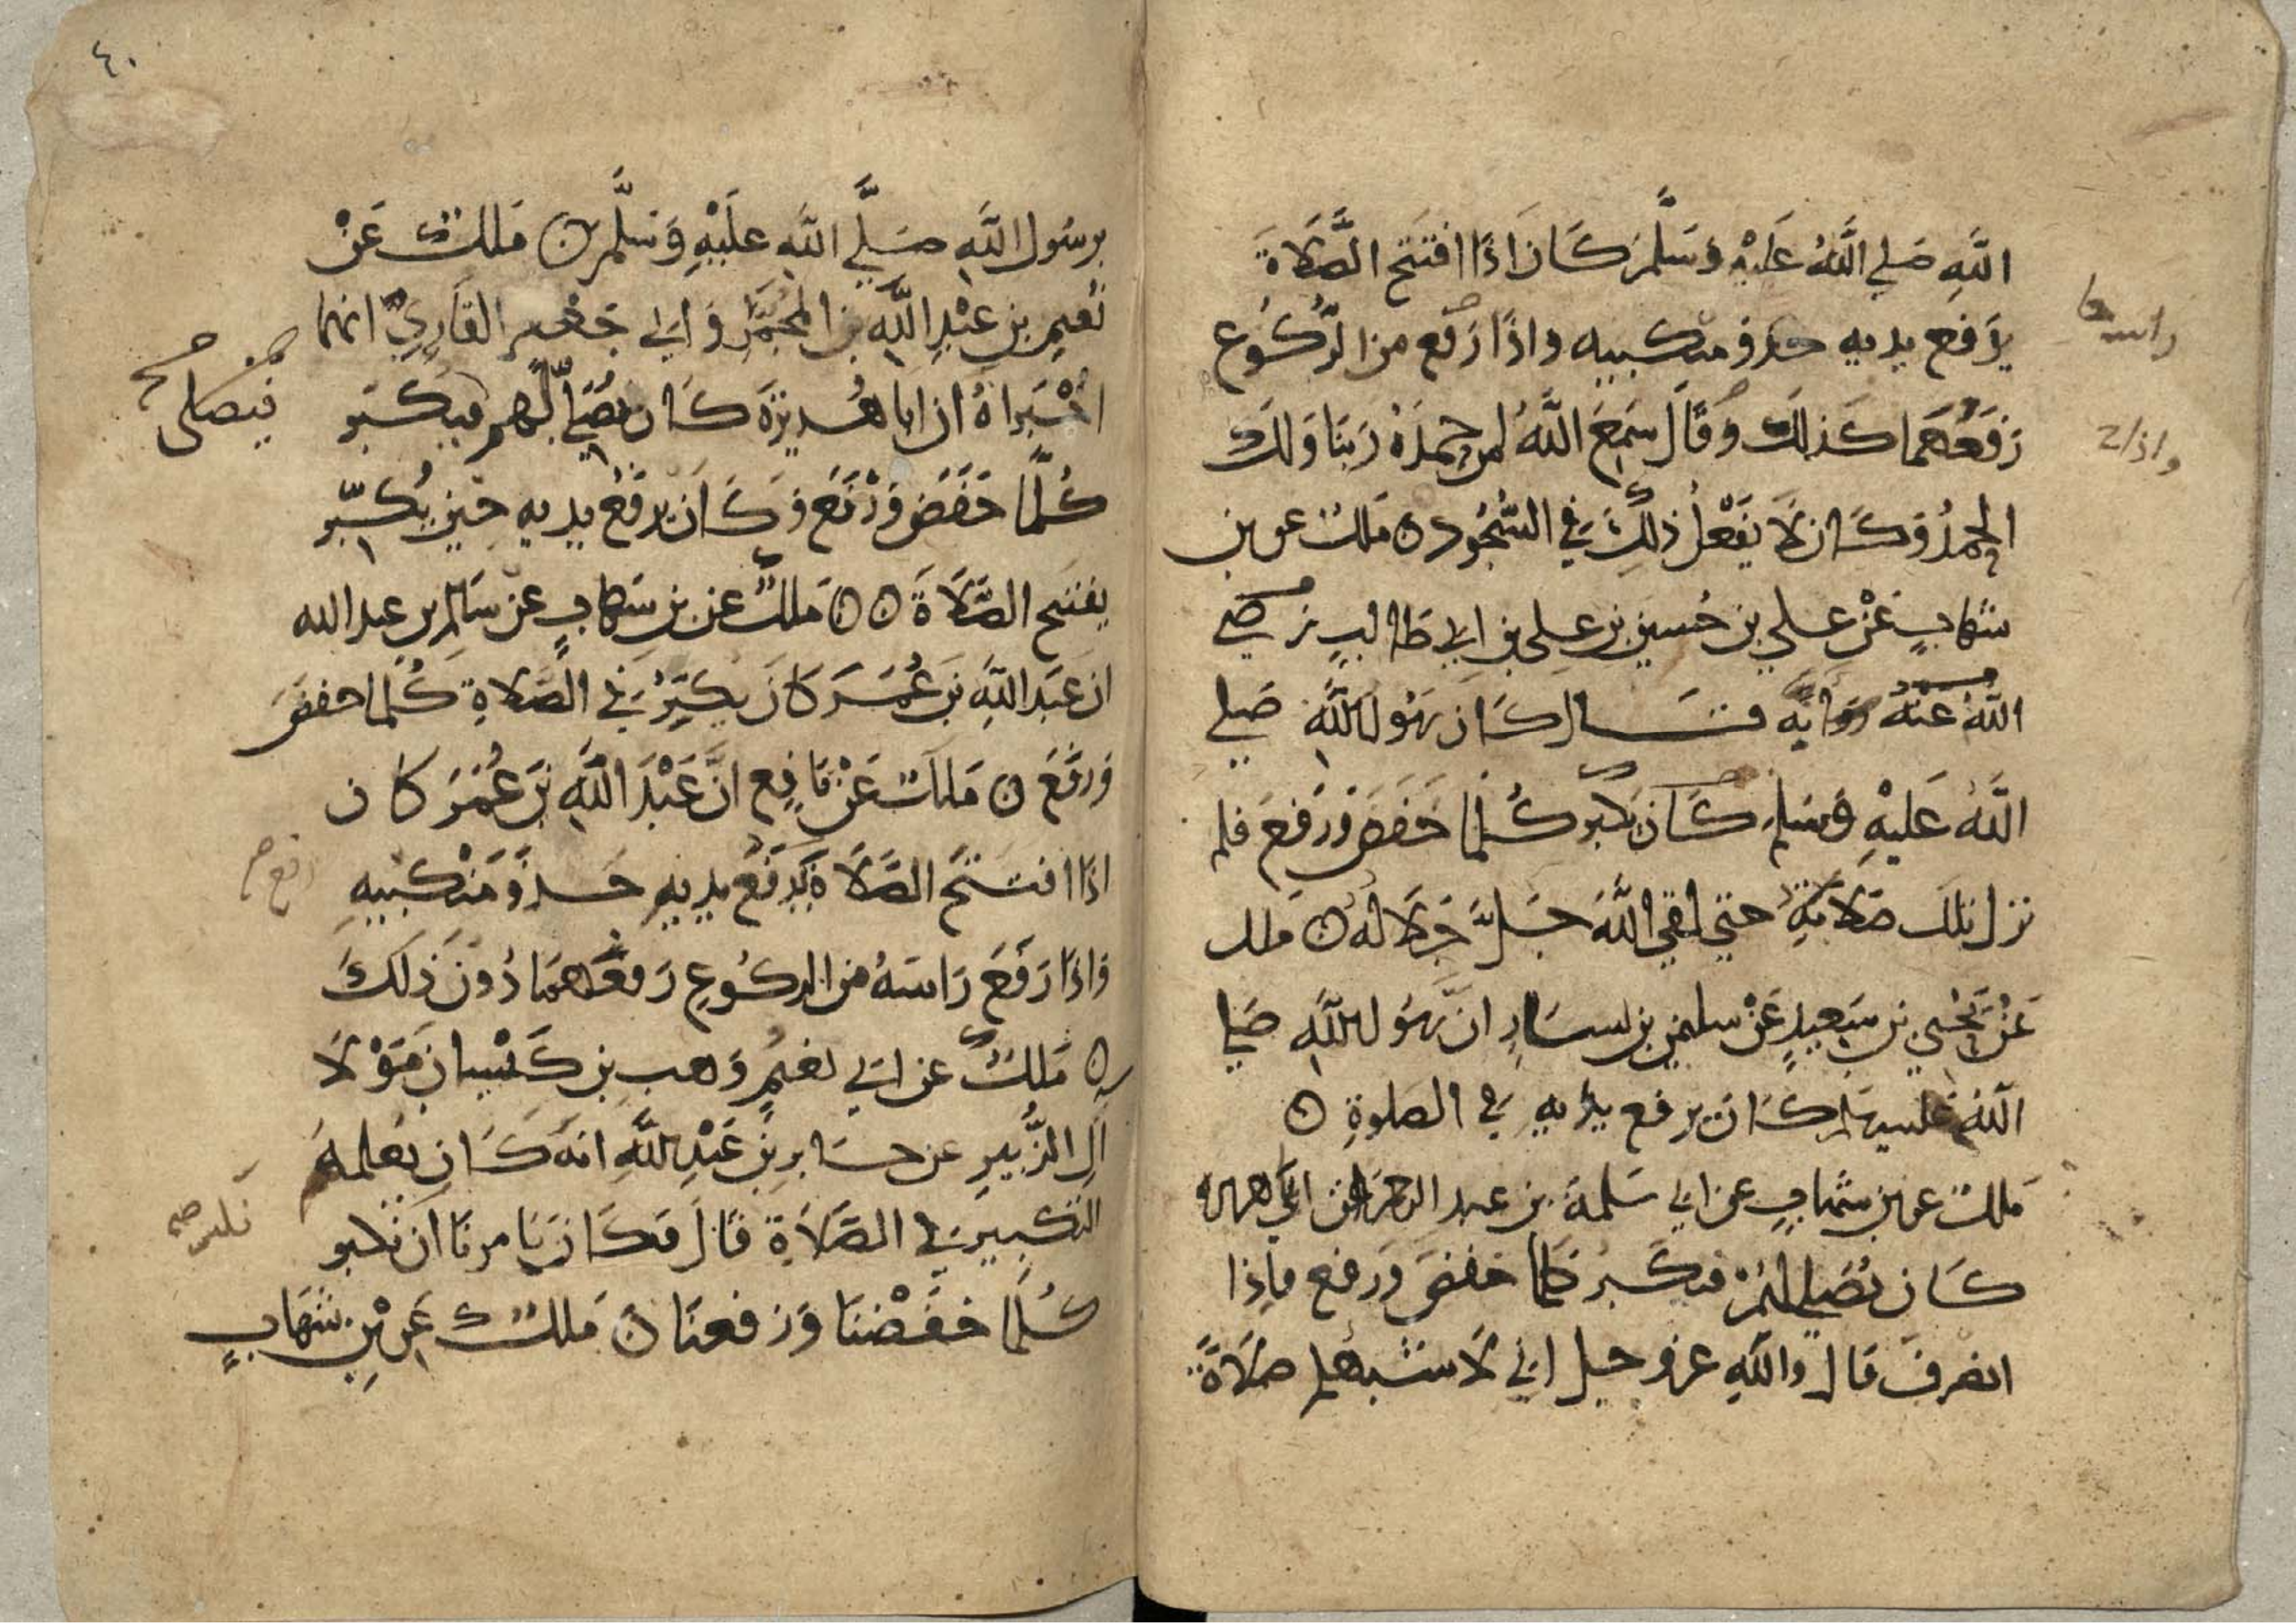 اللَّهِ صَلي اللَّهُ عَلَيْهِ وَسَلَّمَ كَانَ اذَا افتَتَح الصَّلَاةَ
يَرفع يديه حذو منكبيه واذَا رَفع من الرُّكُوع
رَفَعَهُمَا كَذلكَ وَقَالَ سَمِعَ اللَّهُ لمن حمدَهُ رَبنَا وَلكَ
الحمدُ وَكَانَ لَا يَفْعلُ ذلِكَ في السُّجُود ه مَلك عن بن
شهابٍ عَنْ علي بن حُسين بن علي بن ابي طالبٍ رضي
اللهُ عنهُ انَّه قال كان رسُول اللَّهِ صَلي
اللَّهُ عَليْهِ وَسَلم كَان يكبر كُلما خَفضَ وَرَفعَ فلم
تزل تلك صَلَاتهُ حتي لقي اللَّهَ جَلَّ جَلَالهُ ه ملك
عَنْ يَحْيي بن سَعِيدٍ عَنْ سليمن بن يسَارٍ انَّ رسُول اللَّهِ صَلي
اللهُ عليه وسلم كَانَ يرفع يدَيهِ في الصلوةِ ه
مَلك عن بن شهابٍ عن ابي سَلمةَ بن عبد الرحمن ان ابا هريرة
كَانَ يُصَلي لهُمْ فيكَبرُ كلما خفضَ وَرفع فإذا
انصرفَ قَالَ واللهِ عز وجل اني لَاشبهكم صَلَاةً
راسه
واذا ح
٤٠
برسُول اللَّهِ صَلَّي اللَّه عليْهِ وَسَلَّم ه مَلك عَنْ
نُعَيم بن عَبْدِ اللَّهِ بن المُجمَّرِ وَابي جَعْفر القَارِيِّ انهما
اخْبَراهُ ان ابا هُريرَةَ كَان يُصَلِّي لَهم فيكَبر
كُلَّما خَفَضَ وَرَفعَ وَكَانَ يَرفَعُ يديه حِين يُكبّر
يفتتح الصَّلَاةَ ه ه مَلكٌ عن بن شهابٍ عن سَالم بن عبد الله
ان عَبدَ اللَّهِ بَن عُمَرَ كَانَ يكَبِّرُ في الصَّلَاةِ كُلما خفضَ
وَرَفَعَ ه مَلك عَنْ نَافِعٍ انَّ عَبْدَ اللَّهِ بَن عُمَرَ كان
اذَا افتتَحَ الصَّلَاةَ يَرفَعُ يديهِ حَذوَ مَنْكبيهِ
وَاذَا رَفَعَ رَاسَهُ من الركُوعِ رَفعَهمَا دُونَ ذلكَ
ه مَلكٌ عن ابي نعيمٍ وَهب بن كَيْسانَ مَوْلَا
آلِ الزُّبيرِ عن جابرِ بنِ عَبْدِ اللَّهِ انهُ كَانَ يُعلمهُ
التكبيرَ في الصَّلَاةِ قَالَ فكَانَ يَامرنَا ان نكبر
كُلَّما خفَضْنا وَرَفعنَا ه مَلك عَن بْنِ شهَابٍ
فيصلى
رفع